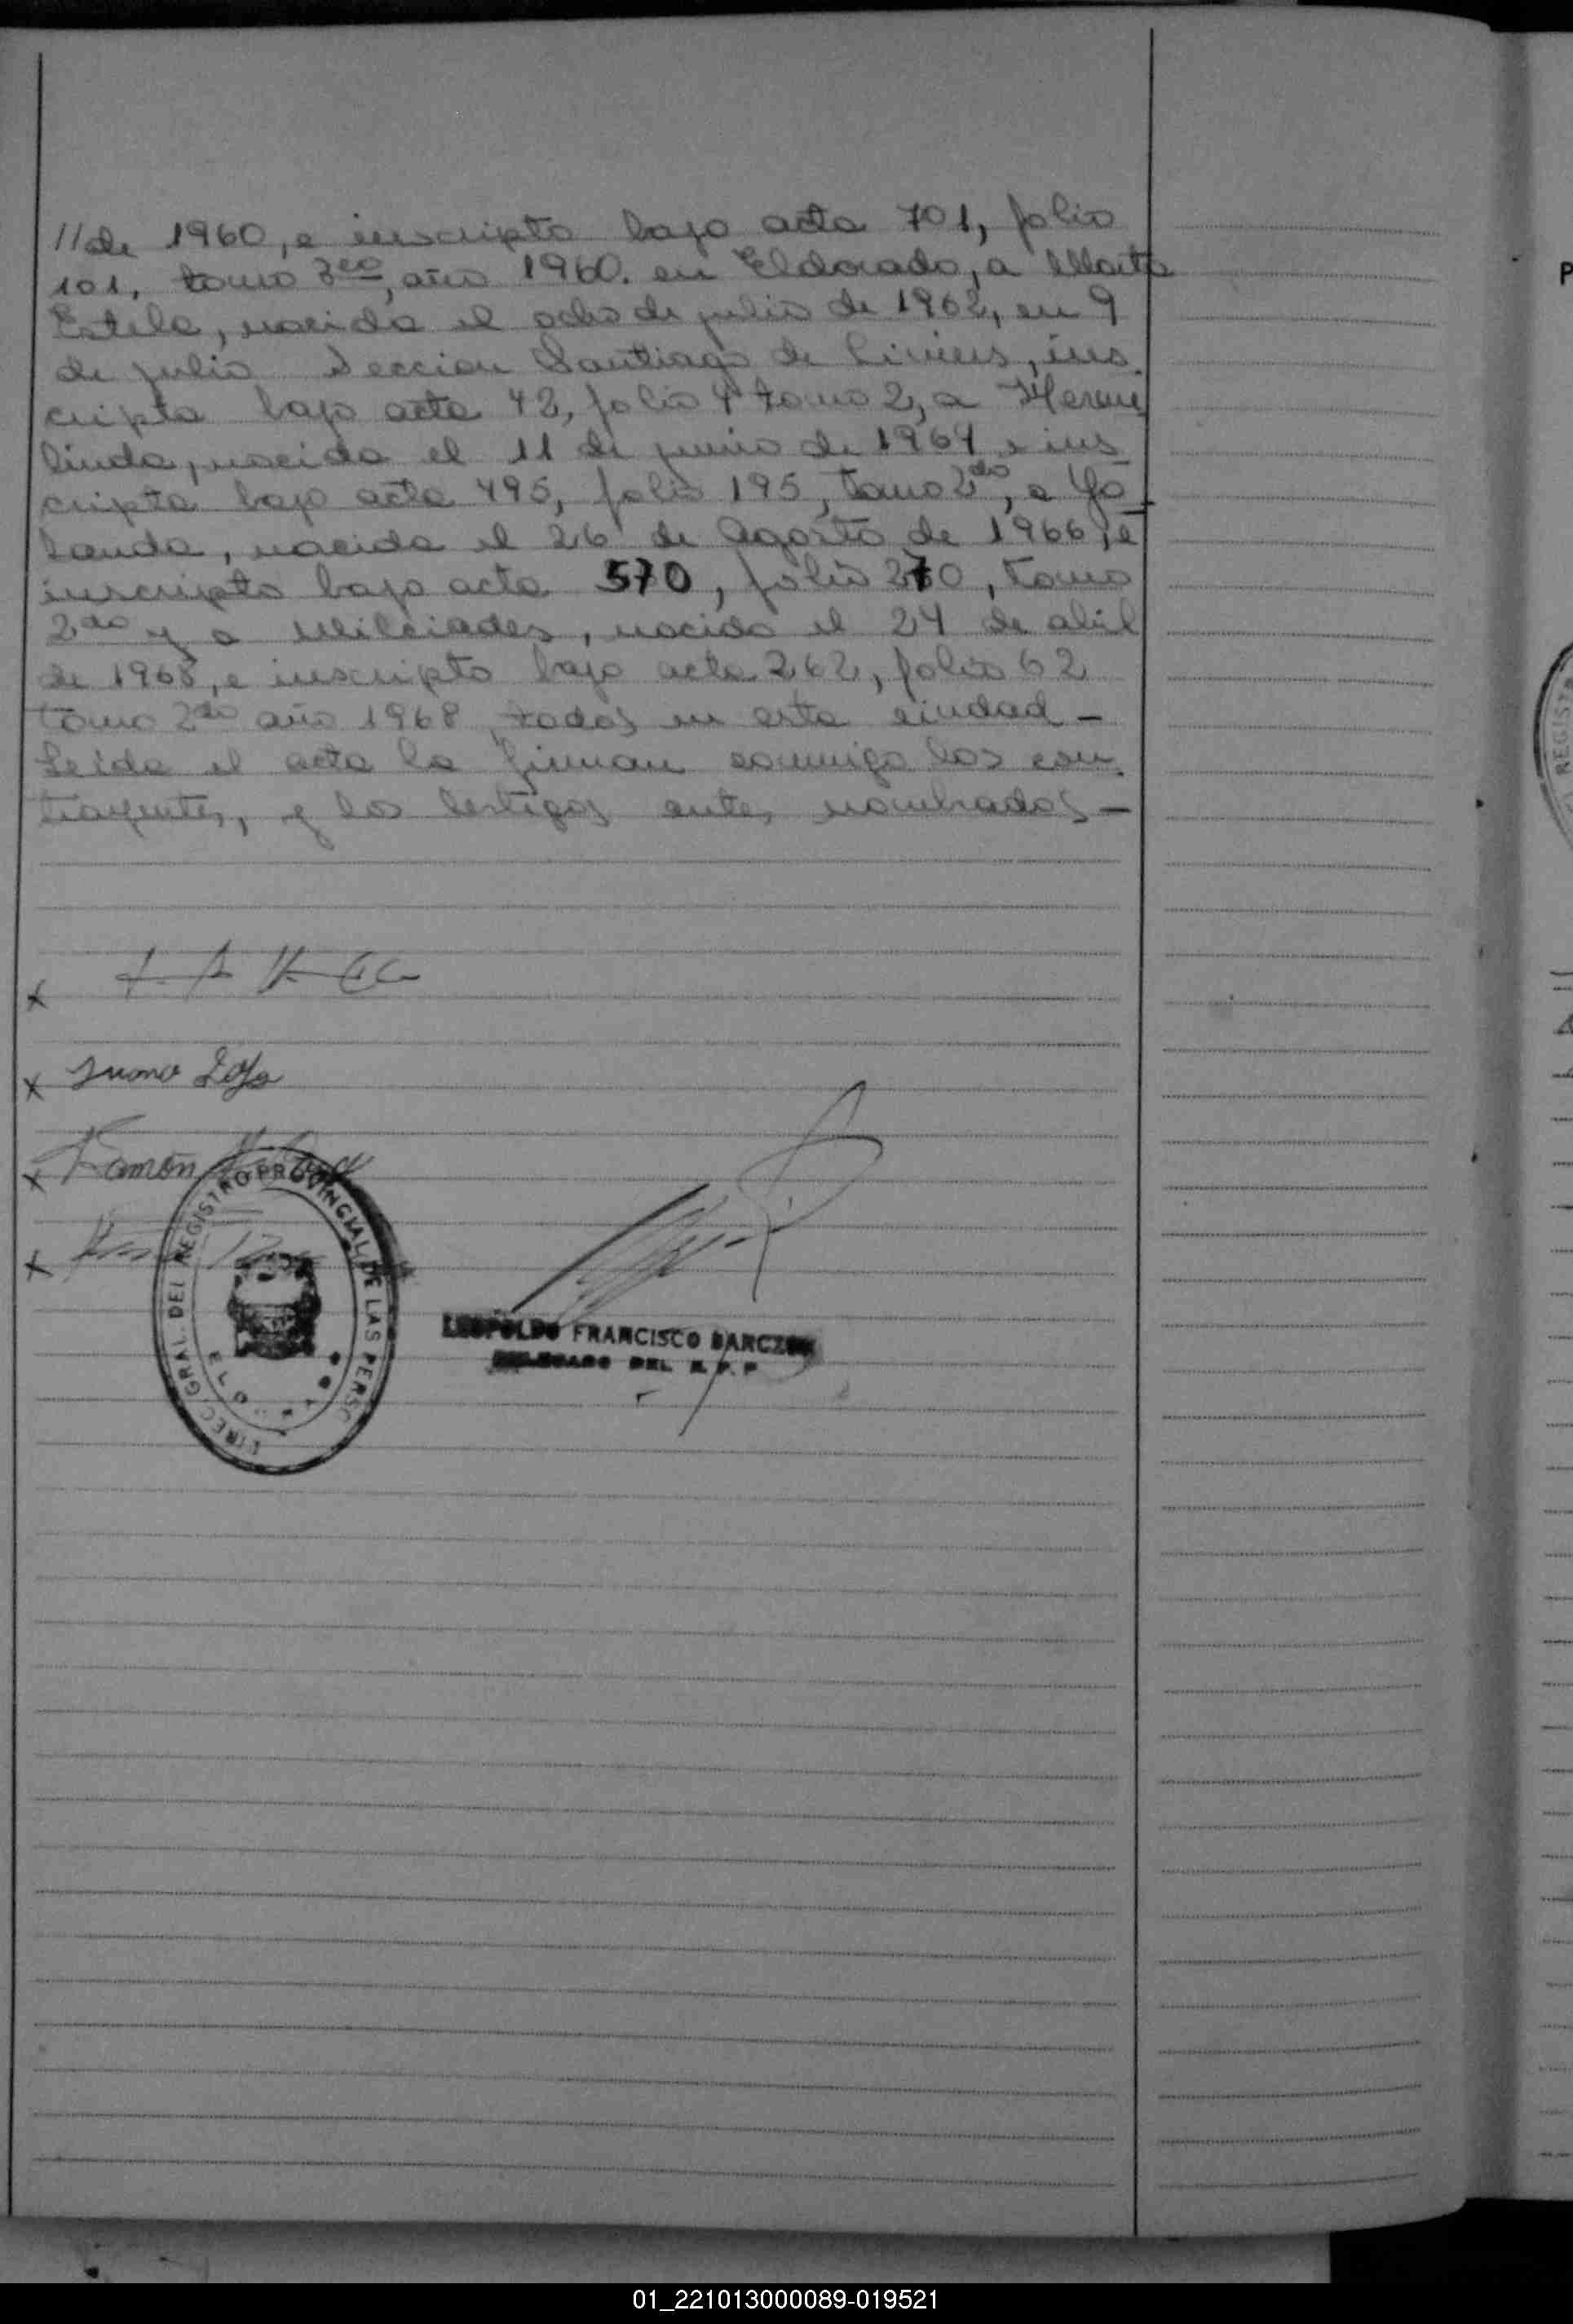 //de 1960, e inscripta bajo acta 701, folio
101, tomo 3ero, año 1960. en Eldorado, a Marta
Estela, nacida el ocho de julio de 1962, en 9
de julio Seccion Santiago de Liniers, ins
cripta bajo acta 42, folio 4 tomo 2, a Herme
linda, nacida el 11 de junio de 1964 e ins
cripta bajo acta 495, folio 195, tomo 2do, a Yo
landa, nacida el 26 de Agosto de 1966, e
inscripta bajo acta 570, folio 270, tomo
2do y a Milciades, nacido el 24 de abril
de 1968, e inscripto bajo acta 262, folio 62
tomo 2do año 1968, todos en esta ciudad -
Leida el acta la firman conmigo los con
trayentes, y los testigos antes nombrados -
x
x Juana
x Ramón
x
DIREC. GRAL. DEL REGISTRO PROVINCIAL DE LAS PERS
LEOPOLDO FRANCISCO
DELEGADO DEL R. P. P
P
REGISTR
01_221013000089-019521